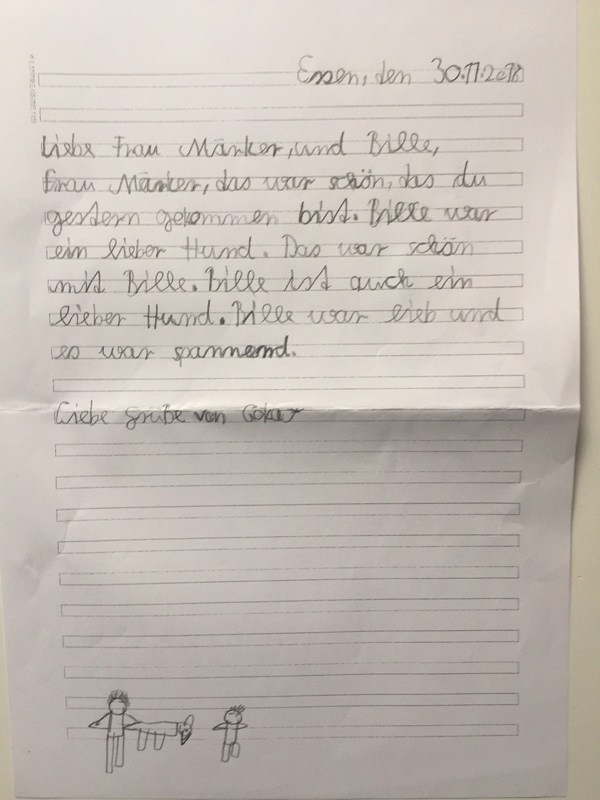 Essen, den 30.11.2018
Liebe Frau Mänker, und Bille,
Frau Mänker, das war schön, das du
gestern gekommen bist. Bille war
ein lieber Hund. Das war schön
mit Bille. Bille ist auch ein
lieber Hund. Bille war lieb und
es war spannend.
Liebe Grüße von